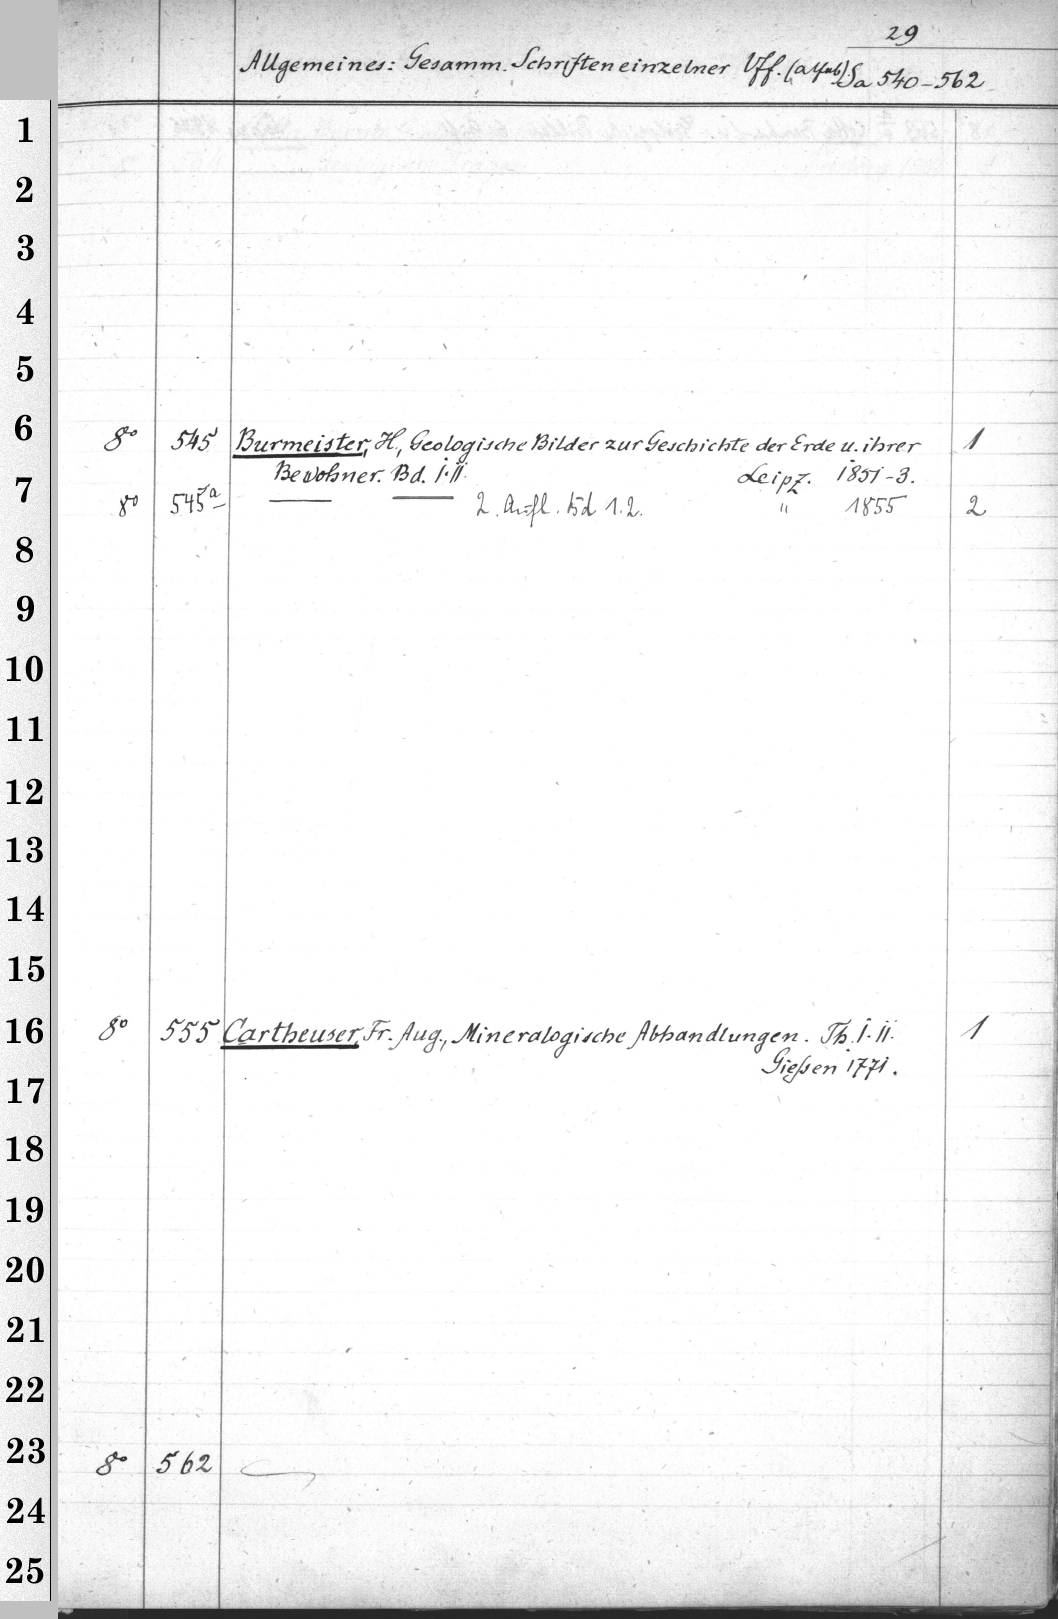 29
Allgemeines: Gesamm. Schriften einzelner Vff. Sa 540-562
1
2
3
4
5
6
8° 545 Burmeister, H., Geologische Bilder zur Geschichte der Erde u. ihrer 1
Bewohner. Bd. I. II. Leipz. 1851-3.
7
8° 545a 2. Aufl. Bd 1.2. " 1855 2
8
9
10
11
12
13
14
15
16
8° 555 Cartheuser, Fr. Aug., Mineralogische Abhandlungen. Th. I. II. 1
Gießen 1771.
17
18
19
20
21
22
23
8° 562
24
25